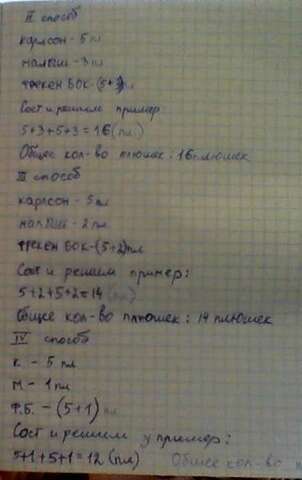 II способ
карлсон - 5 пл
малыш - 3 пл
фрекен Бок - (5+3) пл
Сост и решим пример
5+3+5+3=16 (пл)
Общее кол-во плюшек: 16 плюшек
III способ
карлсон - 5 пл
малыш - 2 пл
фрекен Бок - (5+2) пл
Сост и решим пример:
5+2+5+2=14 (пл)
Общее кол-во плюшек: 14 плюшек
IV способ
К. - 5 пл
М - 1 пл
Ф.Б. - (5+1) пл
Сост и решим пример:
5+1+5+1=12 (пл) Общее кол-во